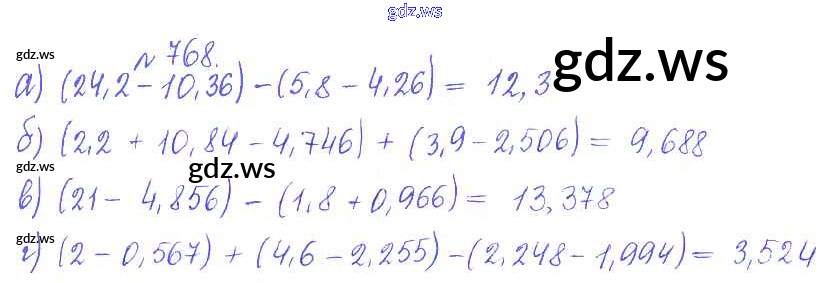 gdz.ws
gdz.ws № 768.
а) (24,2 - 10,36) - (5,8 - 4,26) = 12,3 gdz.ws
б) (2,2 + 10,84 - 4,746) + (3,9 - 2,506) = 9,688
gdz.ws gdz.ws
в) (21 - 4,856) - (1,8 + 0,966) = 13,378
gdz.ws
г) (2 - 0,567) + (4,6 - 2,255) - (2,248 - 1,994) = 3,524